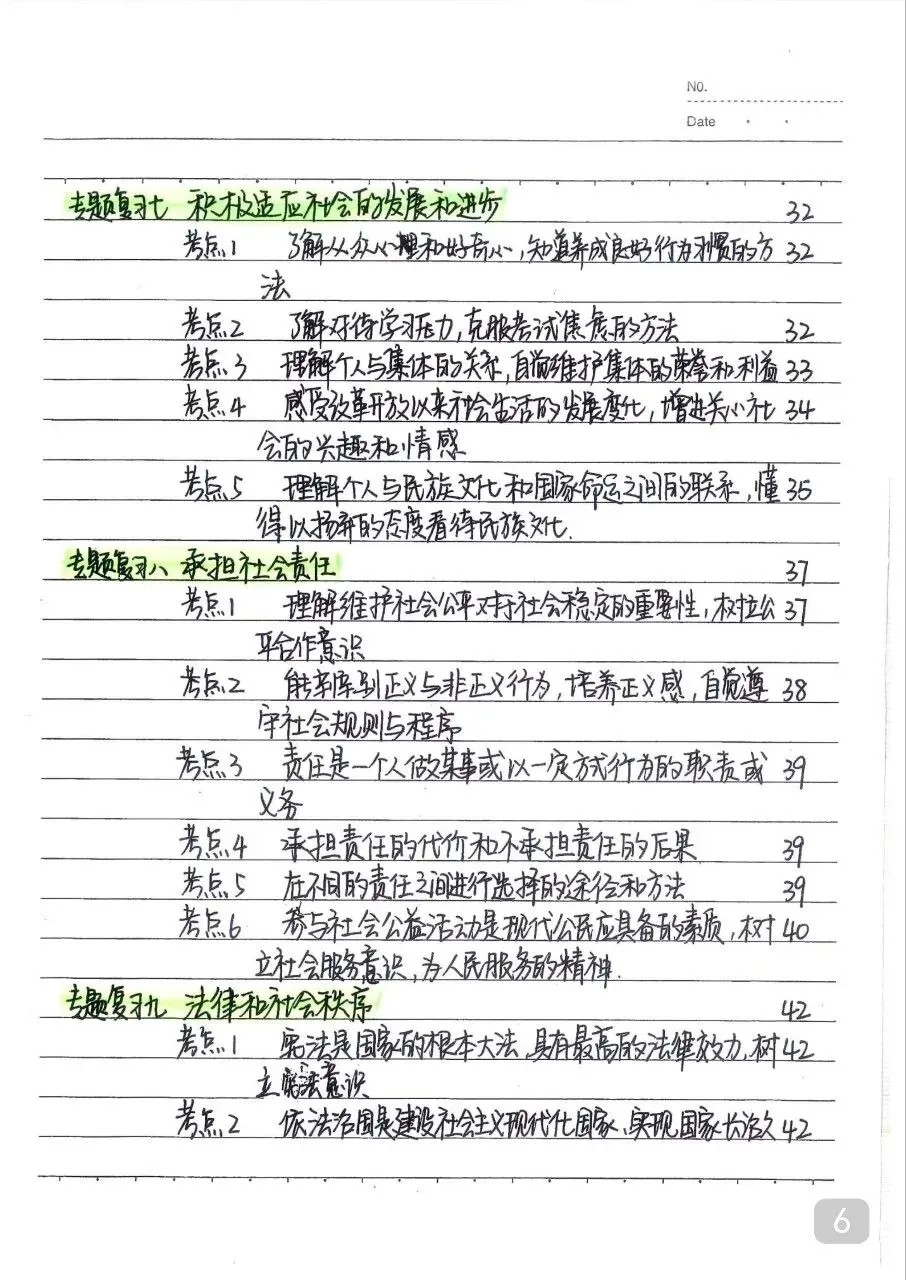 No.
Date
专题复习七 积极适应社会的发展和进步 32
考点1 了解从众心理和好奇心,知道养成良好行为习惯的方 32
法
考点2 了解对待学习压力,克服考试焦虑的方法 32
考点3 理解个人与集体的关系,自觉维护集体的荣誉和利益 33
考点4 感受改革开放以来社会生活的发展变化,增进关心社 34
会的兴趣和情感
考点5 理解个人与民族文化和国家命运之间的联系,懂 35
得以扬弃的态度看待民族文化.
专题复习八 承担社会责任 37
考点1 理解维护社会公平对于社会稳定的重要性,树立公 37
平合作意识
考点2 能辨别到正义与非正义行为,培养正义感,自觉遵 38
守社会规则与程序
考点3 责任是一个人做某事或以一定方式行为的职责或 39
义务
考点4 承担责任的代价和不承担责任的后果 39
考点5 在不同的责任之间进行选择的途径和方法 39
考点6 参与社会公益活动是现代公民应具备的素质,树 40
立社会服务意识,为人民服务的精神.
专题复习九 法律和社会秩序 42
考点1 宪法是国家的根本大法,具有最高的法律效力,树 42
立宪法意识
考点2 依法治国是建设社会主义现代化国家、实现国家长治久 42
6